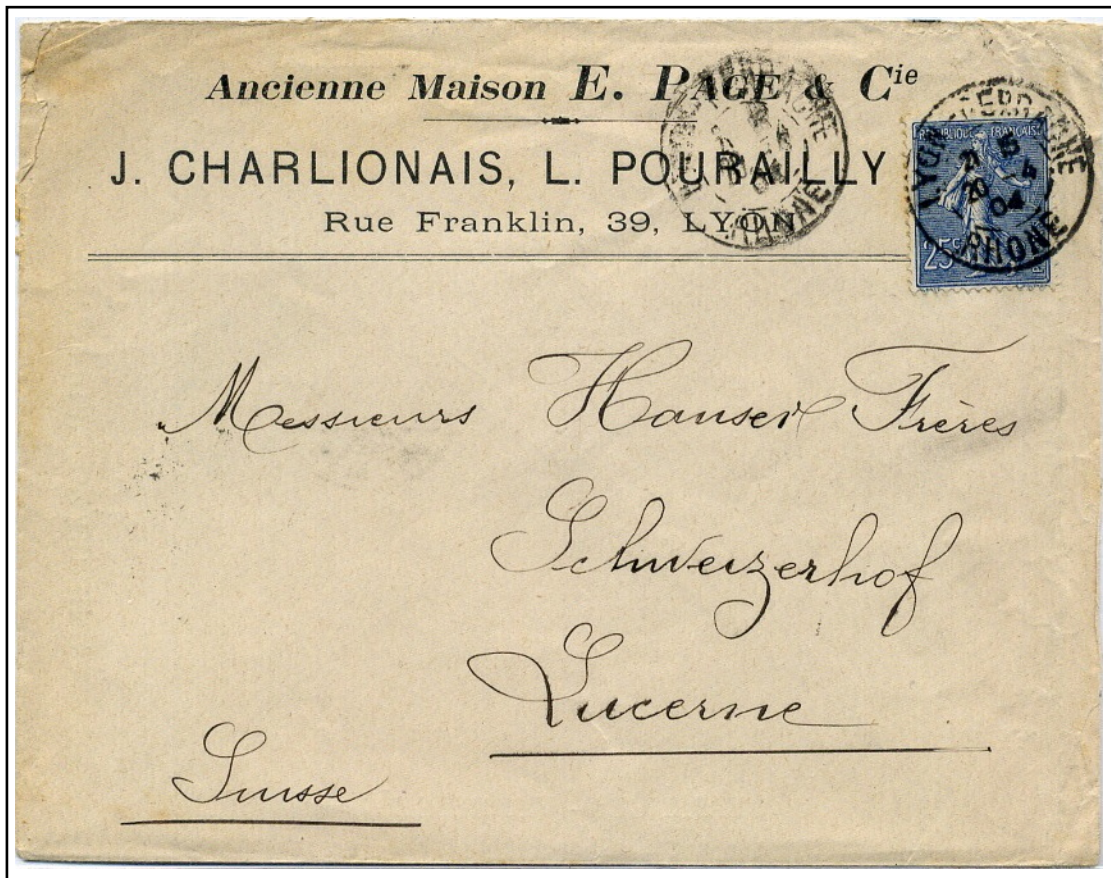 Ancienne Maison E. PAGE & Cie
J. CHARLIONAIS, L. POURAILLY
Rue Franklin, 39, LYON
LYON
RHONE
04
REPUBLIQUE FRANÇAISE
25c
LYON
20
04
RHONE
Messieurs Hauser Frères
Schweizerhof
Lucerne
Suisse